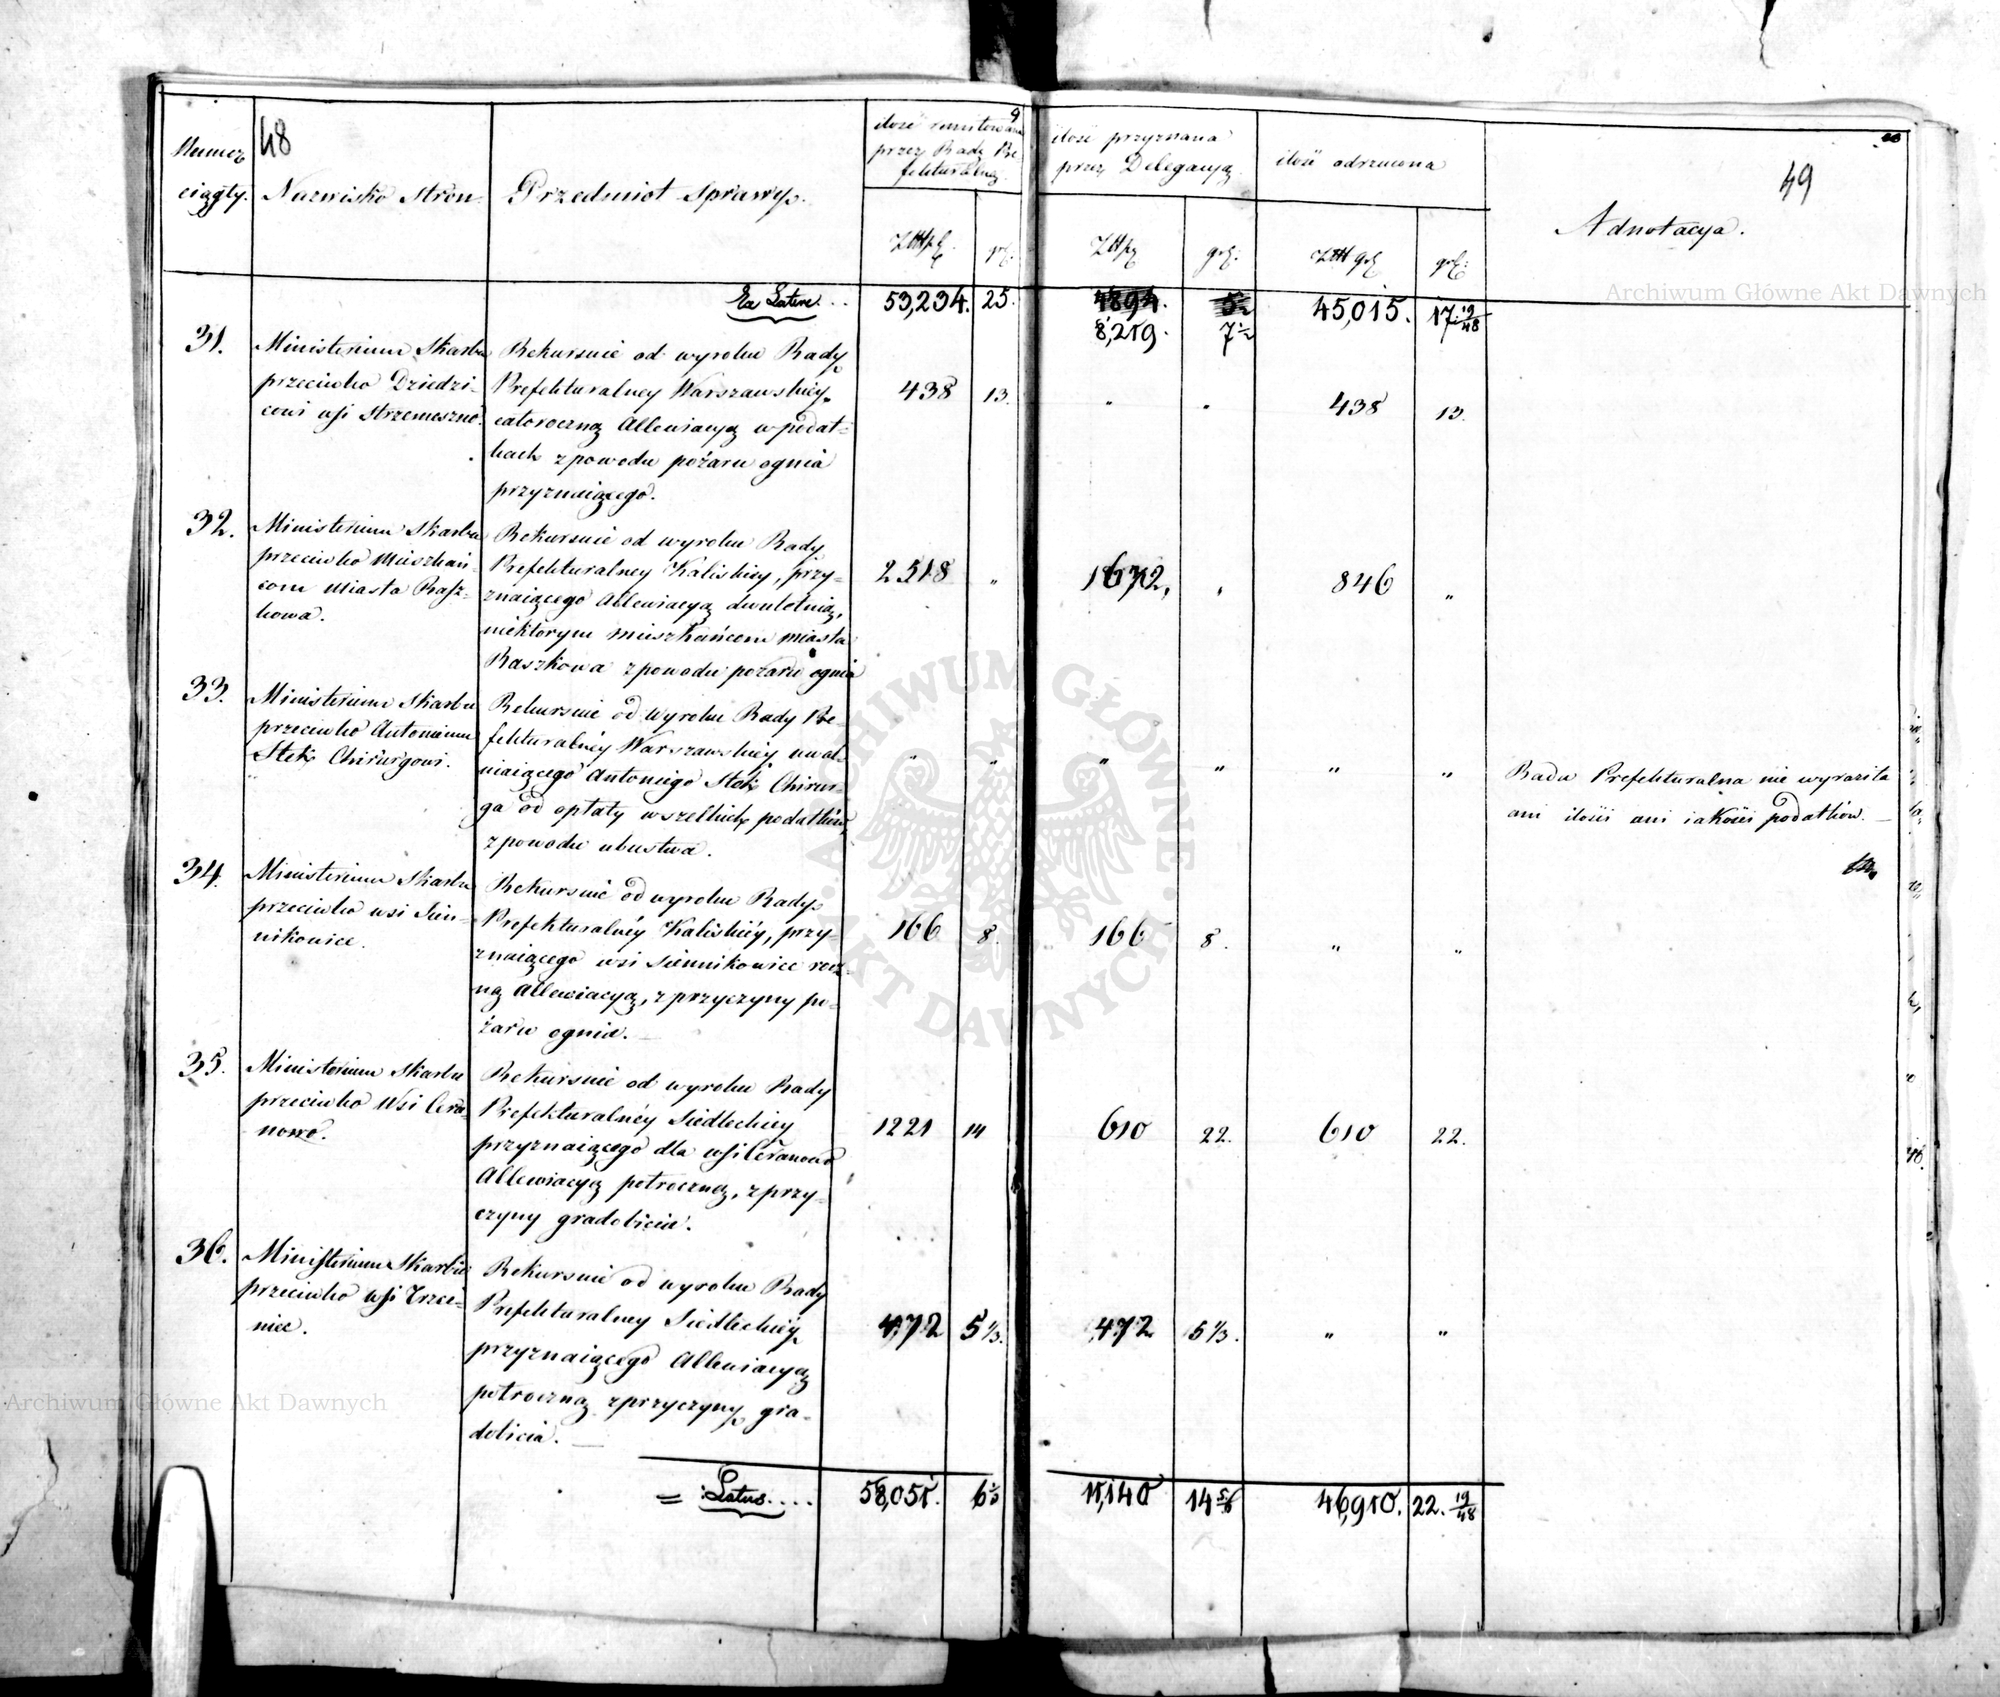 48
9
49
Numer
ciągły.
Nazwisko Stron.
Przedmiot Sprawy.
ilość remitowana
przez Radę Pre
fekturalną
ilość przyznana
przez Delegacyą
ilość odrzucona
Adnotacya.
Ex Latere...
53,234. 25.
4894.
8,219. 7½
45,015. 17 19/48
31.
Ministerium Skarbu
przeciwko Dziedzi-
cowi wsi Strzemeszno.
Rekursuie od wyroku Rady
Prefekturalney Warszawskiey
całoroczną Allewiacyą w podat-
kach z powodu pożaru ognia
przyznaiącego.
438 13. " " 438 13.
32.
Ministerium Skarbu
przeciwko Mieszkań-
com Miasta Rasz-
kowa.
Rekursuie od wyroku Rady
Prefekturalney Kaliskiey, przy-
znaiącego Allewiacyą dwuletnią,
niektorym mieszkańcom miasta
Raszkowa z powodu pożaru ognia
2518 " 1672, " 846 "
33.
Ministerium Skarbu
przeciwko Antoniemu
Stek Chirurgowi.
Rekursuie od wyroku Rady Pre-
fekturalnéy Warszawskiéy uwal-
niaiącego Antoniego Stek Chirur-
ga od opłaty wszelkich podatków,
z powodu ubustwa.
" " " " " "
Rada Prefekturalna nie wyraziła
ani ilości ani iakości podatków.
34.
Ministerium Skarbu
przeciwko wsi Sien-
nikowice.
Rekursuie od wyroku Rady
Prefekturalnéy Kaliskiéy, przy-
znaiącego wsi Siennikowice rocz-
ną Allewiacyą, z przyczyny po-
żaru ognia.
166 8. 166 8. " "
35.
Ministerium Skarbu
przeciwko Wsi Cera-
nowo.
Rekursuie od wyroku Rady
Prefekturalnéy Siedleckiey
przyznaiącego dla wsi Ceranowo
Allewiacyą potroczną, z przy-
czyny gradobicia.
1221 14 610 22. 610 22.
36.
Ministerium Skarbu
przeciwko wsi Trzci-
niec.
Rekursuie od wyroku Rady
Prefekturalney Siedleckiéy
przyznaiącego Allewiacyą
potroczną z przyczyny gra-
dobicia.
472 5 1/3. 472 5 1/3. " "
= Latus....
58,051. 6 1/3 11,140 14 5/6 46,910. 22. 19/48
Archiwum Główne Akt Dawnych
Archiwum Główne Akt Dawnych
ARCHIWUM GŁÓWNE AKT DAWNYCH